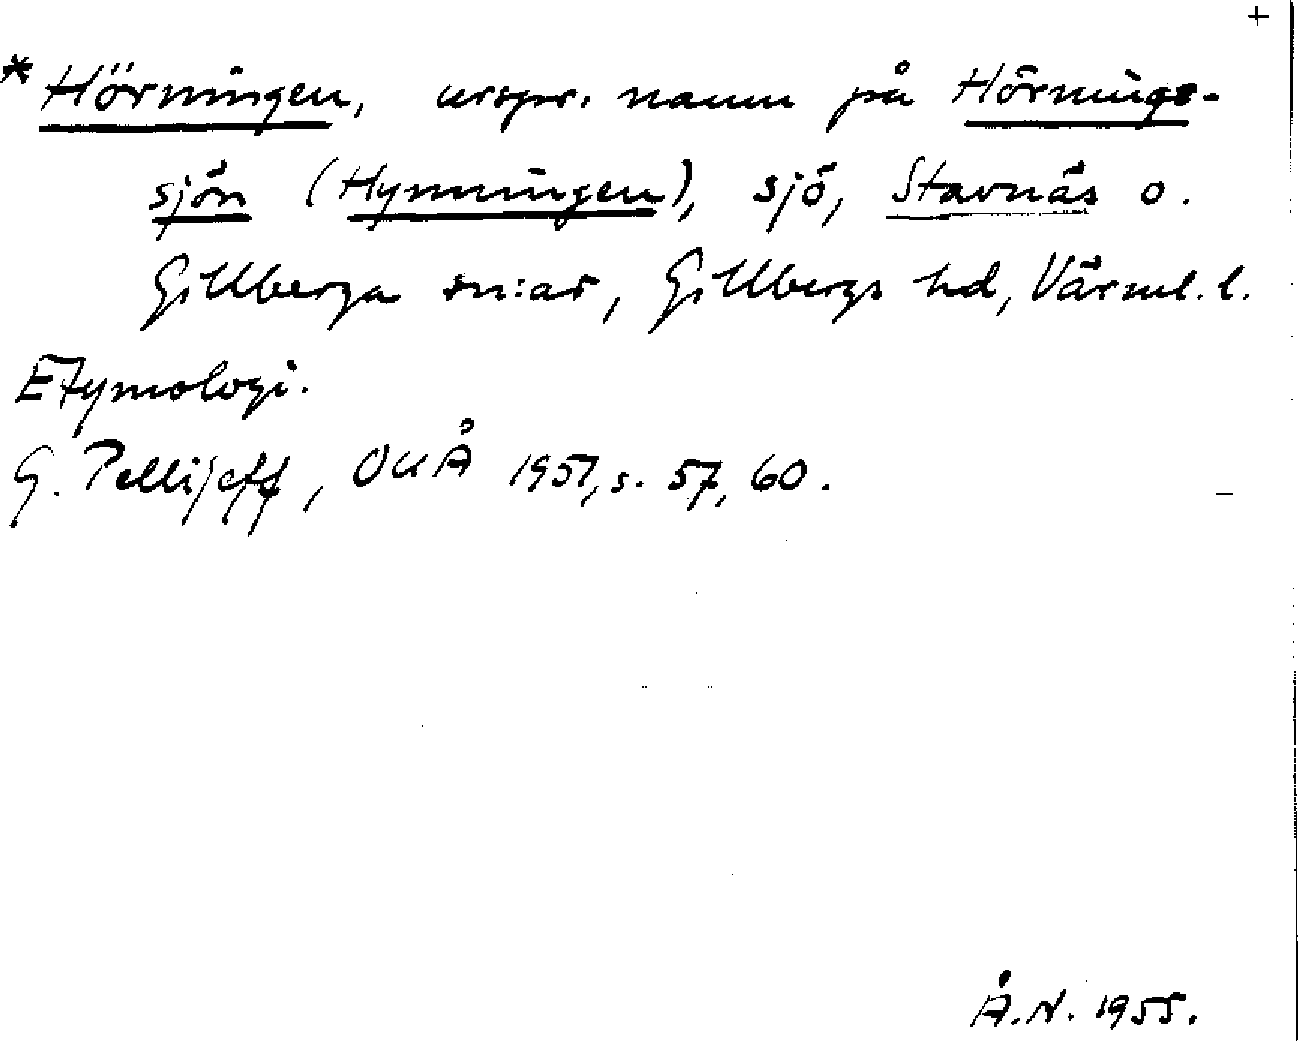 +
*Hörningen, urspr. namn på Hörnings-
sjön (Hynningen), sjö, Stavnäs o.
Gillberga sn:ar, Gillbergs hd, Värml. l.
Etymologi.
G. Pellijeff, OUÅ 1951, s. 57, 60.
Å.N. 1955.